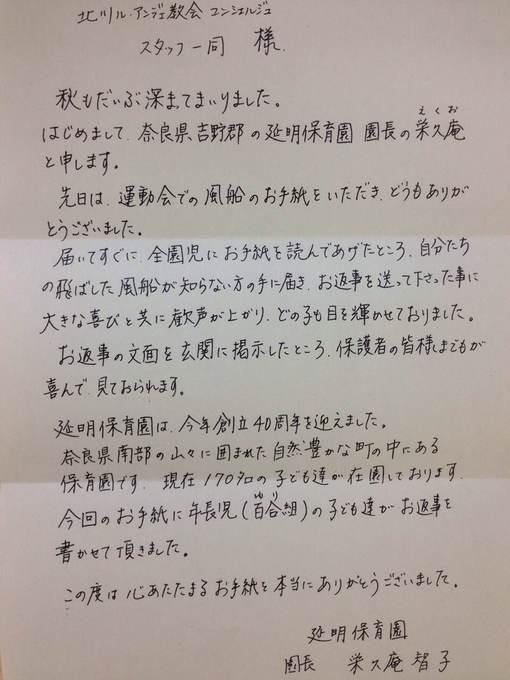 北ツル・アンヂェ教会 コンシェルジュ
スタッフ一同 様.
秋もだいぶ深まってまいりました。
はじめまして、奈良県吉野郡の延明保育園 園長の栄久庵
えくお
と申します。
先日は、運動会での風船のお手紙をいただき、どうもありが
とうございました。
届いてすぐに、全園児にお手紙を読んであげたところ、自分たち
の飛ばした風船が知らない方の手に届き、お返事を送って下さった事に
大きな喜びと共に歓声が上がり、どの子も目を輝かせておりました。
お返事の文面を玄関に掲示したところ、保護者の皆様までもが
喜んで、見ておられます。
延明保育園は、今年創立40周年を迎えました。
奈良県南部の山々に囲まれた自然豊かな町の中にある
保育園です。現在170名の子ども達が在園しております。
今回のお手紙に年長児(百合組)の子ども達がお返事を
ゆり
書かせて頂きました。
この度は心あたたまるお手紙を本当にありがとうございました。
延明保育園
園長 栄久庵智子